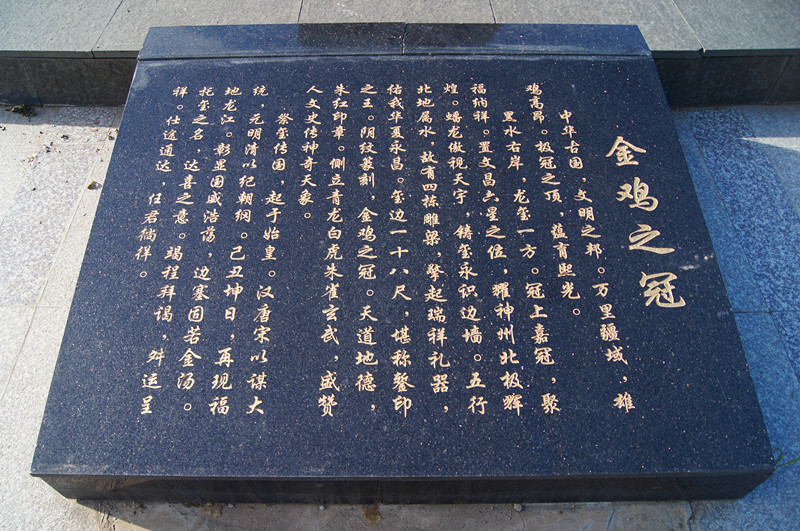 金鸡之冠
中华古国，文明之邦。万里疆域，雄
鸡高昂。极冠之顶，蕴育熙光。
黑水右岸，龙玺一方。冠上嘉冠，聚
福纳祥。置文昌六星之位，耀神州北极辉
煌。蟠龙傲视天宇，铸玺永识边墙。五行
北地属水，故有四栋雕梁，擎起瑞祥礼器，
佑我华夏永昌。玺边一十八尺，堪称鏊印
之王。阴纹篆刻，金鸡之冠。天道地德，
朱红印章。侧立青龙白虎朱雀玄武，盛赞
人文史传神奇天象。
祭玺传国，起于始皇。汉唐宋以谋大
统，元明清以纪朝纲。己丑坤日，再现福
地龙江。彰显国威浩荡，边塞固若金汤。
托玺之名，达喜之意。竭程拜谒，舛运呈
祥。仕途通达，任君徜徉。